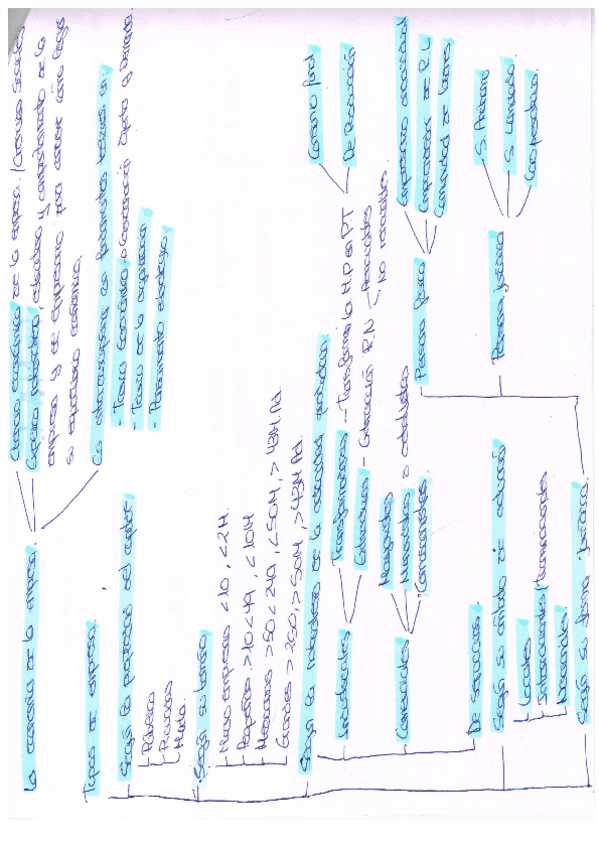 La economía de la empresa
Ciencia económica de la empresa / Ciencias Sociales
Explica naturaleza, estructura y comportamiento de la
empresa y del empresario para conocer cómo logra
su equilibrio económico.
Es interdisciplinar con fundamentos teóricos en:
- Teoría Económica
- Teoría de la organización
- Pensamiento estratégico
Tipos de empresa.
Según la propiedad del capital
Pública
Privada
Mixta.
Según su tamaño
Micro empresas <10, <2M.
Pequeñas >10<49, <10M
Medianas >50<249, <50M, >43M Ad.
Grandes >250, >50M, >43M Ad.
Según la naturaleza de la actividad
Industriales
Transformadoras - Transforma la M.P en PT
Comercio final
De Producción
Extractivas - Extracción R.N
Renovables
No renovables
Comerciales
Mayoristas
Minoristas o detallistas
Comisionistas
De Servicios.
Según su ámbito de actuación
Locales
Nacionales
Según su forma jurídica.
Persona física
Empresario individual
Emprendedor de R.L
Comunidad de bienes
Persona jurídica
S. Anónima
S. Limitada
Cooperativa